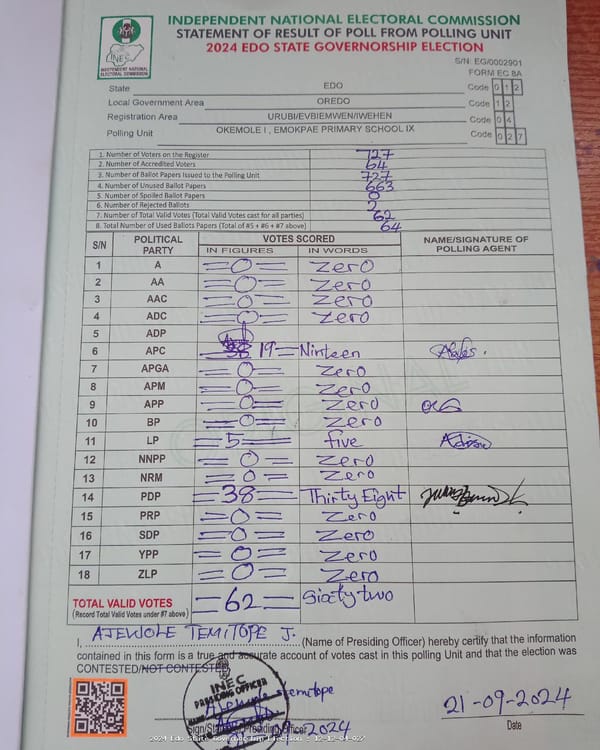 INDEPENDENT NATIONAL ELECTORAL COMMISSION
STATEMENT OF RESULT OF POLL FROM POLLING UNIT
2024 EDO STATE GOVERNORSHIP ELECTION
INEC
INDEPENDENT NATIONAL
ELECTORAL COMMISSION
S/N: EG/0002901
FORM EC 8A
State EDO Code 0 1 2
Local Government Area OREDO Code 1 2
Registration Area URUBI/EVBIEMWEN/IWEHEN Code 0 4
Polling Unit OKEMOLE I , EMOKPAE PRIMARY SCHOOL IX Code 0 2 7
1. Number of Voters on the Register 727
2. Number of Accredited Voters 64
3. Number of Ballot Papers Issued to the Polling Unit 727
4. Number of Unused Ballot Papers 663
5. Number of Spoiled Ballot Papers 0
6. Number of Rejected Ballots 2
7. Number of Total Valid Votes (Total Valid Votes cast for all parties) 62
8. Total Number of Used Ballots Papers (Total of #5 + #6 + #7 above) 64
S/N POLITICAL PARTY VOTES SCORED NAME/SIGNATURE OF POLLING AGENT
IN FIGURES IN WORDS
1 A =0= Zero
2 AA =0= Zero
3 AAC =0= Zero
4 ADC =0= Zero
5 ADP
6 APC 19= Ninteen
7 APGA =0= Zero
8 APM =0= Zero
9 APP =0= Zero
10 BP =0= Zero
11 LP =5= five
12 NNPP =0= Zero
13 NRM =0= Zero
14 PDP =38= Thirty Eight
15 PRP =0= Zero
16 SDP =0= Zero
17 YPP =0= Zero
18 ZLP =0= Zero
TOTAL VALID VOTES =62= Sixty two
(Record Total Valid Votes under #7 above)
I, AJEWOLE TEMITOPE J. (Name of Presiding Officer) hereby certify that the information
contained in this form is a true and accurate account of votes cast in this polling Unit and that the election was
CONTESTED/NOT CONTESTED
INEC
PRESIDING OFFICER
Temitope
21-09-2024
Date
2024 Edo State Governorship Election - 12-12-04-027